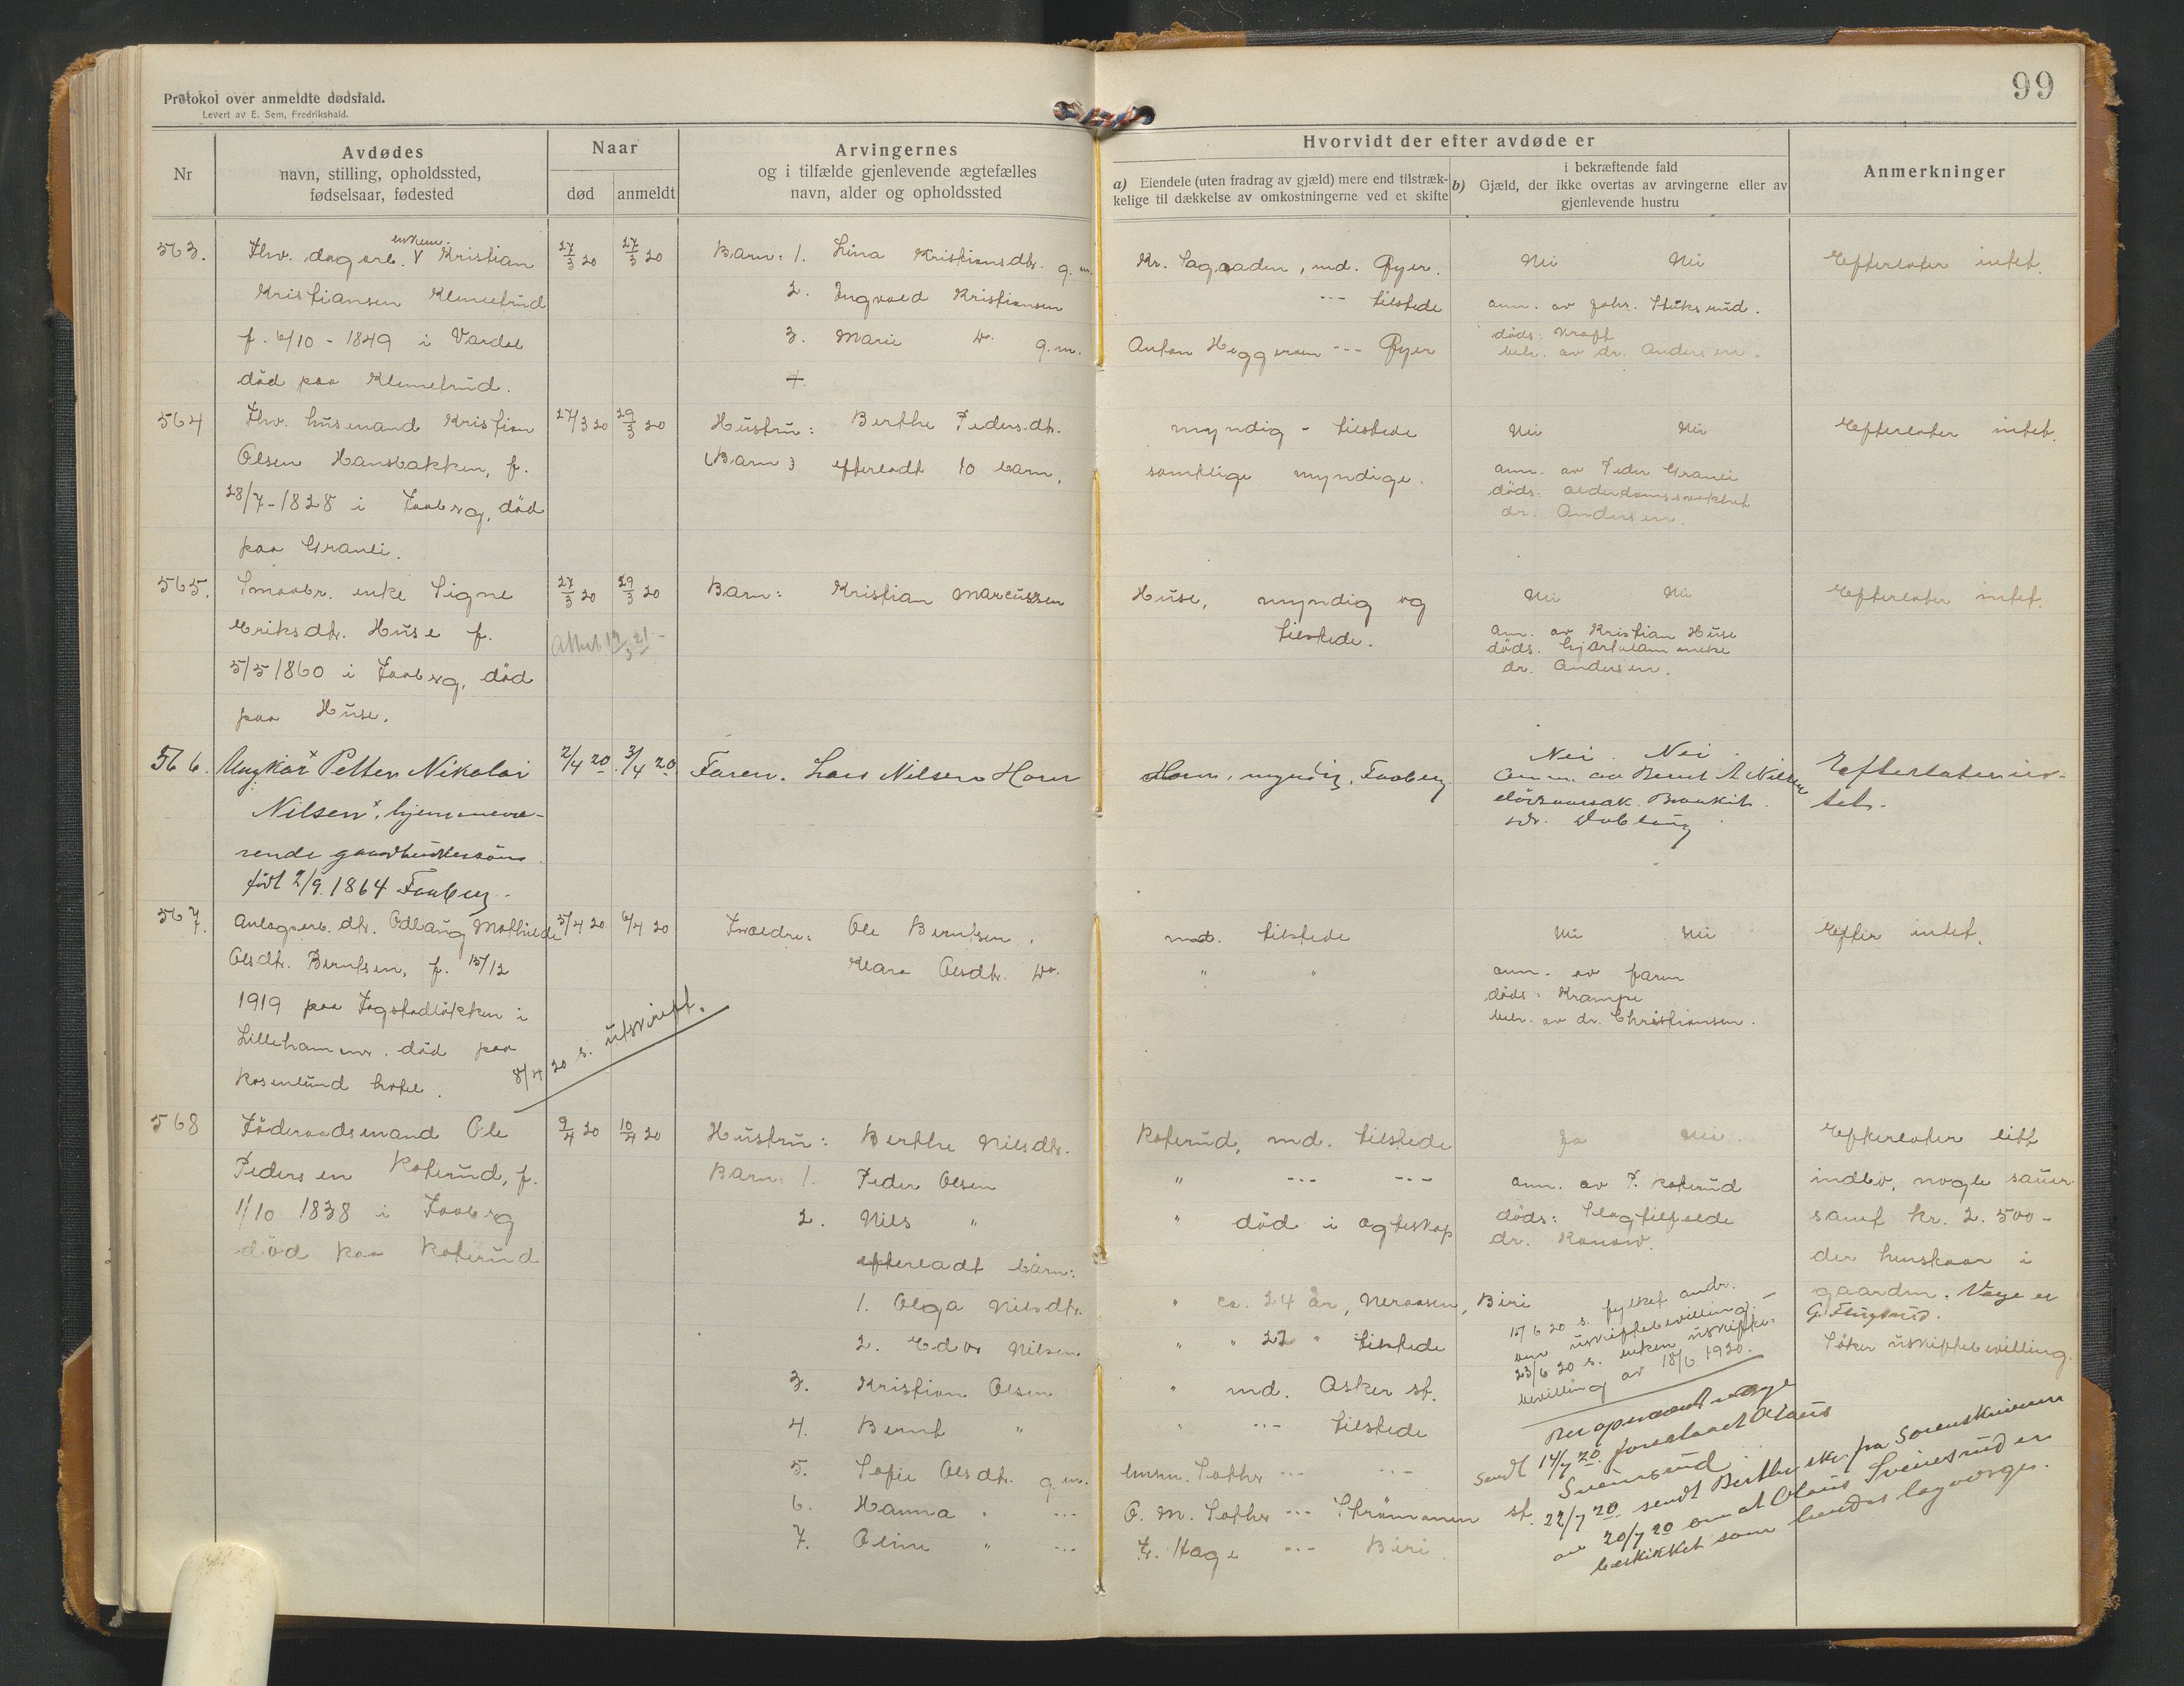 Protokol over anmeldte dødsfald.
Levert av E. Sem, Fredrikshald.
99
Nr
Avdødes
navn, stilling, opholdssted,
fødselsaar, fødested
Naar
død
anmeldt
Arvingernes
og i tilfælde gjenlevende ægtefælles
navn, alder og opholdssted
Hvorvidt der efter avdøde er
a) Eiendele (uten fradrag av gjæld) mere end tilstræk-
kelige til dækkelse av omkostningerne ved et skifte
i bekræftende fald
b) Gjæld, der ikke overtas av arvingerne eller av
gjenlevende hustru
Anmerkninger
563. Fhv. dagarb. V Kristian 27/3 20 27/3 20 Barn: 1. Lina Kristiansdtr. g. m. Kr. Sagaaden, md. Øyer. Nei Nei Efterlater intet.
enkem.
Kristiansen Klemetrud 2. Ingvald Kristiansen --- tilstede anm. av Johs. Stuksrud.
f. 6/10 - 1849 i Vardal 3. Marie Do. g. m. Anton Heggeroen --- Øyer døds: Kræft
beh. av dr. Andersen.
død paa Klemetrud. 4.
564 Fhv. husmand Kristian 27/3 20 29/3 20 Hustru: Berthe Pedersdtr. myndig - tilstede Nei Nei Efterlater intet.
Olsen Hansbakken, f. (Barn) efterladt 10 barn, samtlige myndige. anm. av Peder Granli
28/7-1828 i Faaberg, død døds: alderdomssvakhet
dr. Andersen.
paa Granli.
565. Smaabr. enke Signe 27/3 20 29/3 20 Barn: Kristian Marcussen Huse, myndig og Nei Nei Efterlater intet.
Eriksdtr. Huse f. Attest 19/3 21- tilstede. anm. av Kristian Huse
døds. hjertelammelse
5/5 1860 i Faaberg, død dr. Andersen.
paa Huse.
566. Ungkar x Petter Nikolai 2/4 20 3/4 20 Faren. Lars Nilsen Horn Horn, myndig, Faaberg Nei. Nei. Efterlater in-
Nilsen x, hjemmevæ- anm. av Bernt A. Nilsen tet.
dødsaarsak. Bronkit.
rende gaardbrukersøn
født 2/9. 1864 Faaberg.
567. Anlegsarb. dtr. Odlaug Mathilde 5/4 20 6/4 20 Forældre: Ole Berntsen, md. tilstede Nei Nei Efter intet.
Olsdtr. Berntsen, f. 15/12 Klara Olsdtr. Do. " " anm. av faren
1919 paa Jogstadløkken i døds: Krampe
Lillehammer. død paa beh. av dr. Christiansen.
Rosenlund hotel. 8/4 20 s. utskrift.
568 Føderaadsmand Ole 9/4 20 10/4 20 Hustru: Berthe Nilsdtr. Roterud, md. tilstede Ja Nei. Efterlater litt
Pedersen Roterud, f. Barn: 1. Peder Olsen " --- --- anm. av P. Roterud indbo, nogle sauer
1/10 1838 i Faaberg 2. Nils " " død i egteskap døds: Slagtilfælde samt kr. 2.500-
dr. Konow.
død paa Roterud efterladt barn: der henstaar i
1. Olga Nilsdtr. " ca. 24 år, Neraasen, Biri gaarden. Verge er
2. Edv. Nilsen " " 22 " tilstede Søker uskiftebevilling.
15/6 20 s. fylket andr.
om uskiftebevilling.-
23/6 20 s. enken uskifte-
bevilling av 18/6 1920.
3. Kristian Olsen " md. Asker st.
4. Bernt " " --- tilstede
5. Sofie Olsdtr. g. m. --- ---
6. Hanna " --- O. M. Sæther --- Strømmen st.
7. Oline " --- E. Hage --- Biri.
Sendt 14/7 20 foreslaaet Olaus
Sveinsrud.
22/7 20 sendt Berthe skr. fra Sorenskriveren
av 20/7 20 om at Olaus Sveinsrud er
beskikket som hendes lagverge.